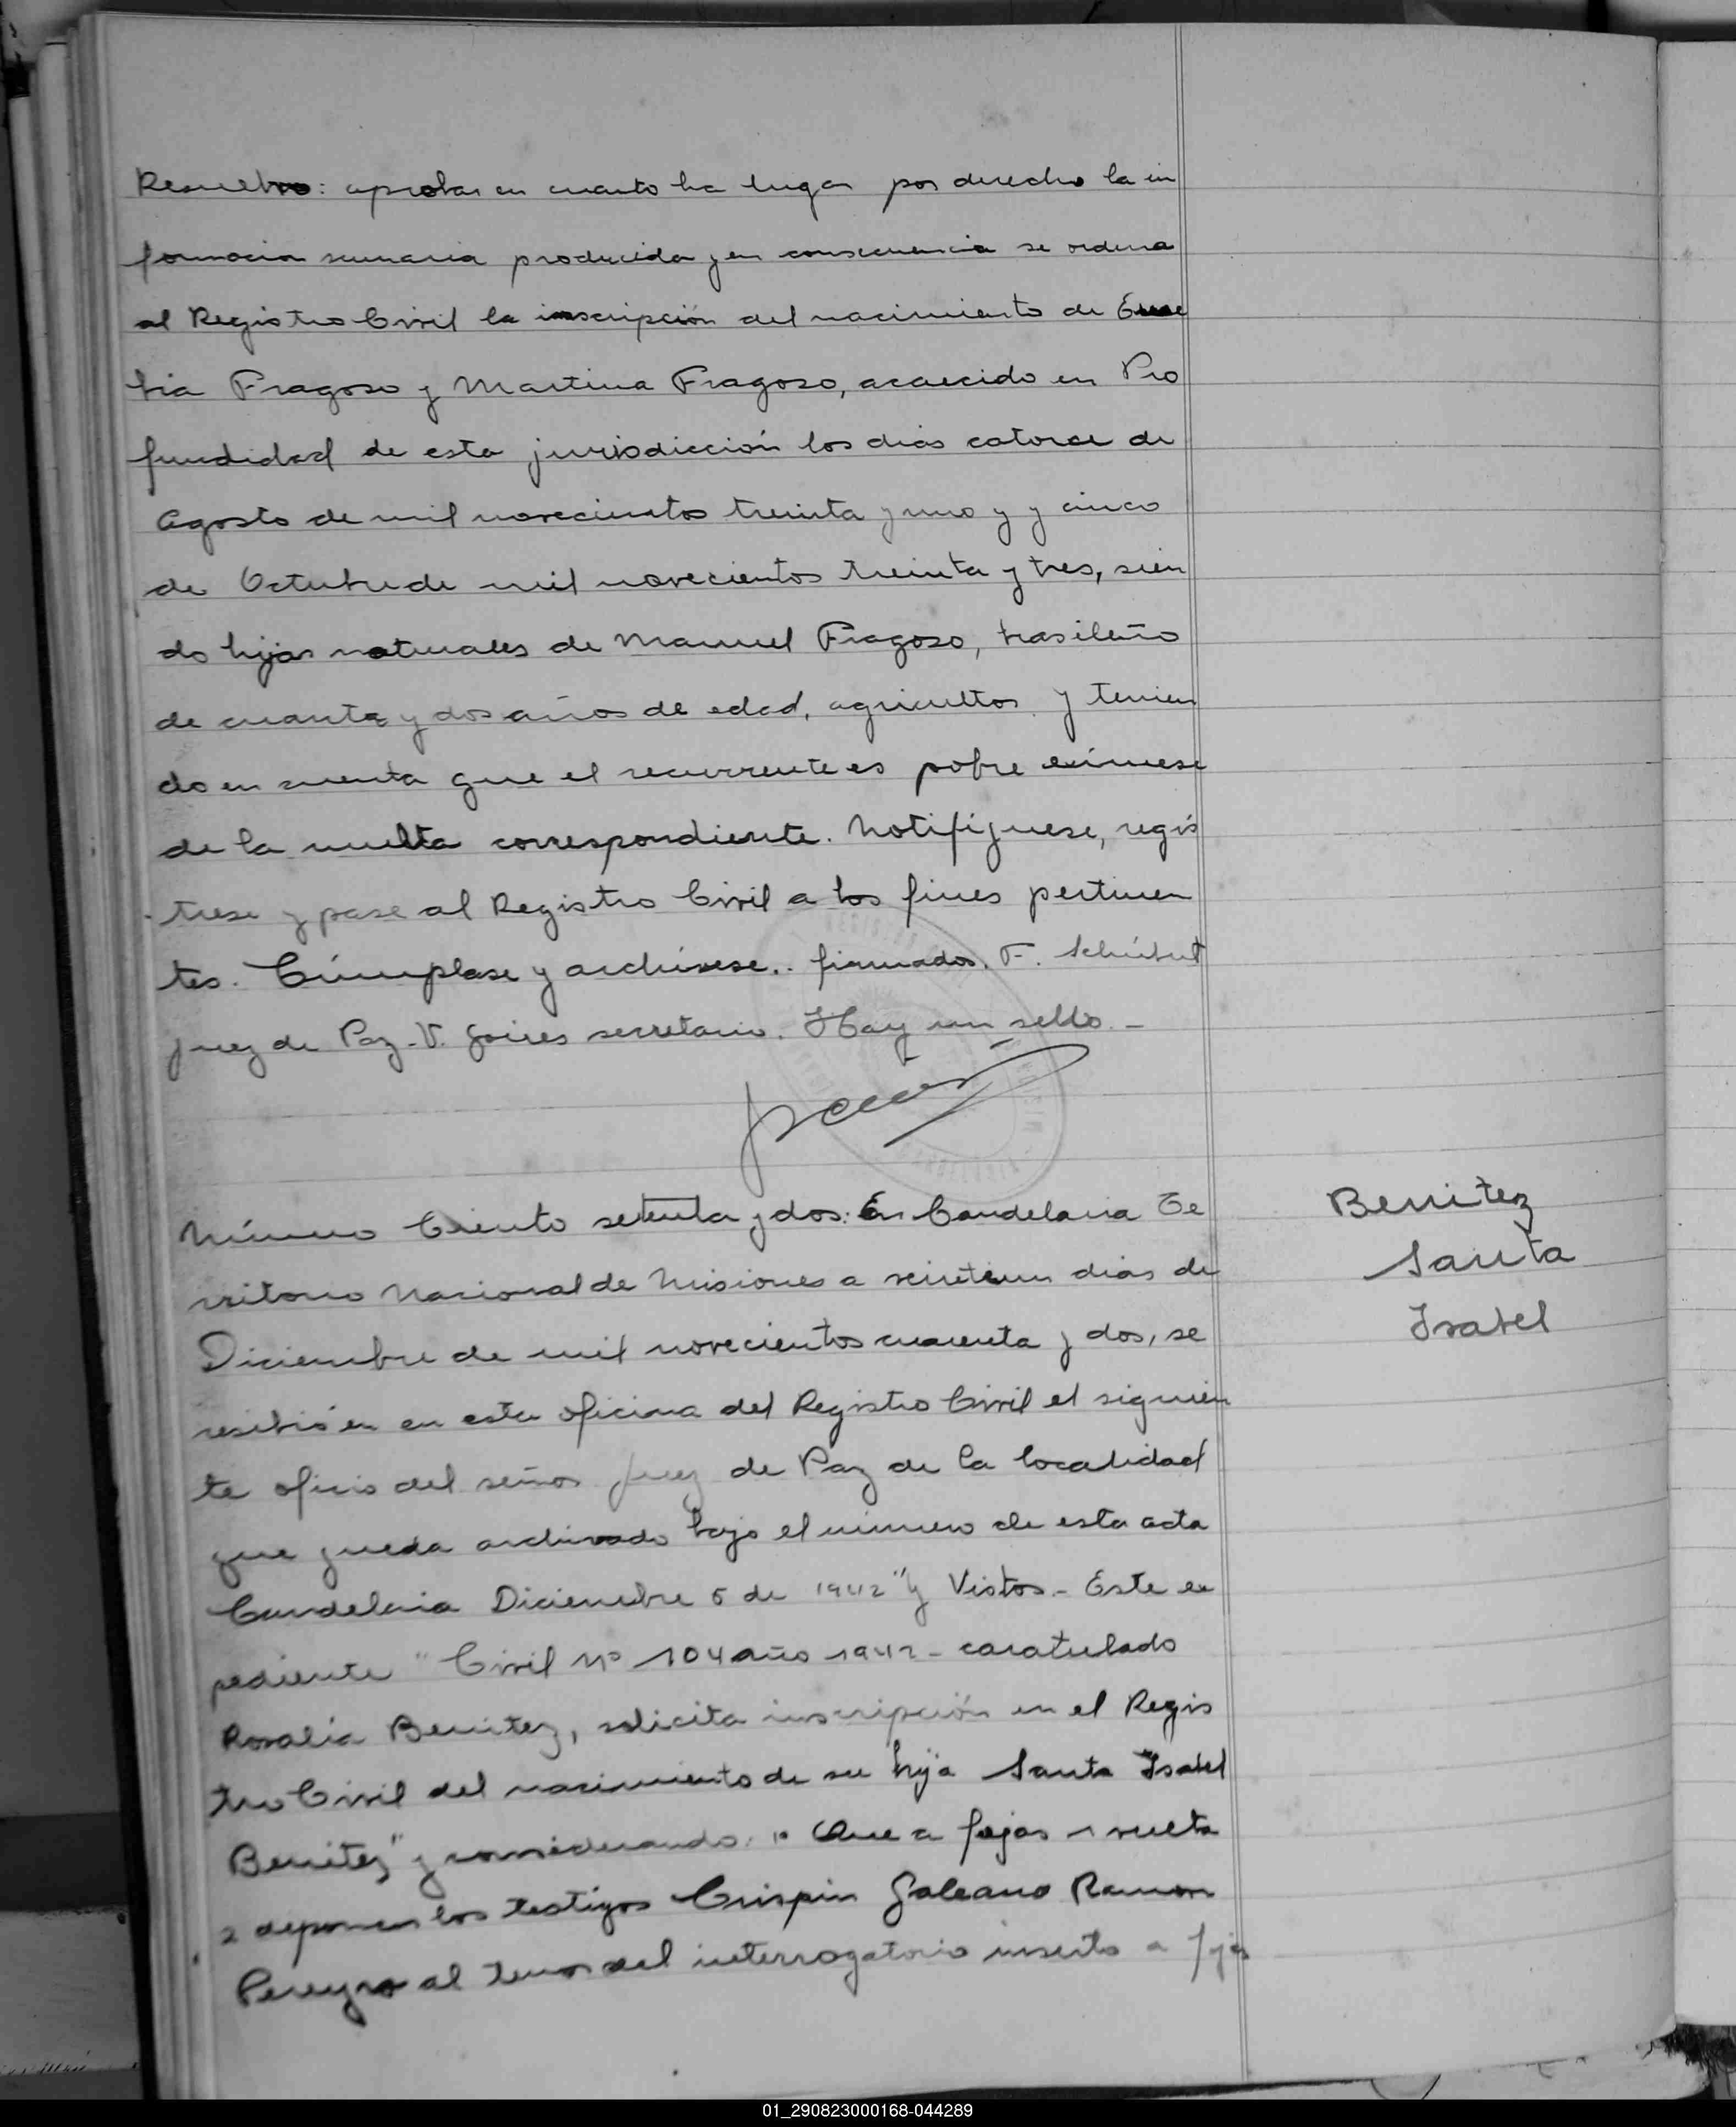 Resuelvo: aprobar en cuanto ha lugar por derecho la in
formacion sumaria producida y en consecuencia se ordena
al Registro Civil la inscripción del nacimiento de Euse
bia Fragoso y Martina Fragoso, acaecido en Pro
fundidad de esta jurisdicción los dias catorce de
Agosto de mil novecientos treinta y uno y y cinco
de Octubre de mil novecientos treinta y tres, sien
do hijas naturales de Manuel Fragoso, brasileño
de cuarta y dos años de edad, agricultor y tenien
do en cuenta que el recurrente es pobre exímese
de la multa correspondiente. Notifiquese, regís
trese y pase al Registro Civil a los fines pertinen
tes. Cúmplase y archívese.. firmados. F.
Juez de Paz - V. secretario. Hay un sello. -
Número Ciento setenta y dos: En Candelaria Te
rritorio Nacional de Misiones a dias de
Diciembre de mil novecientos cuarenta y dos, se
recibió en en esta oficina del Registro Civil el siguien
te oficio del señor Juez de Paz de la localidad
que queda archivado bajo el número de esta acta
Candelaria Diciembre 5 de 1942 "Y Vistos.- Este ex
pediente "Civil Nº 104 año 1942 - caratulado
Rosalía Benitez, solicita inscripción en el Regis
tro Civil del nacimiento de su hija Santa Isabel
Benitez" y considerando: 1º Que a fojas 1 vuelta
2 deponen los testigos Crispin Galeano Ramon
Pereyra al tenor del interrogatorio inserto a fojas
Benitez
Santa
Isabel
01_290823000168-044289